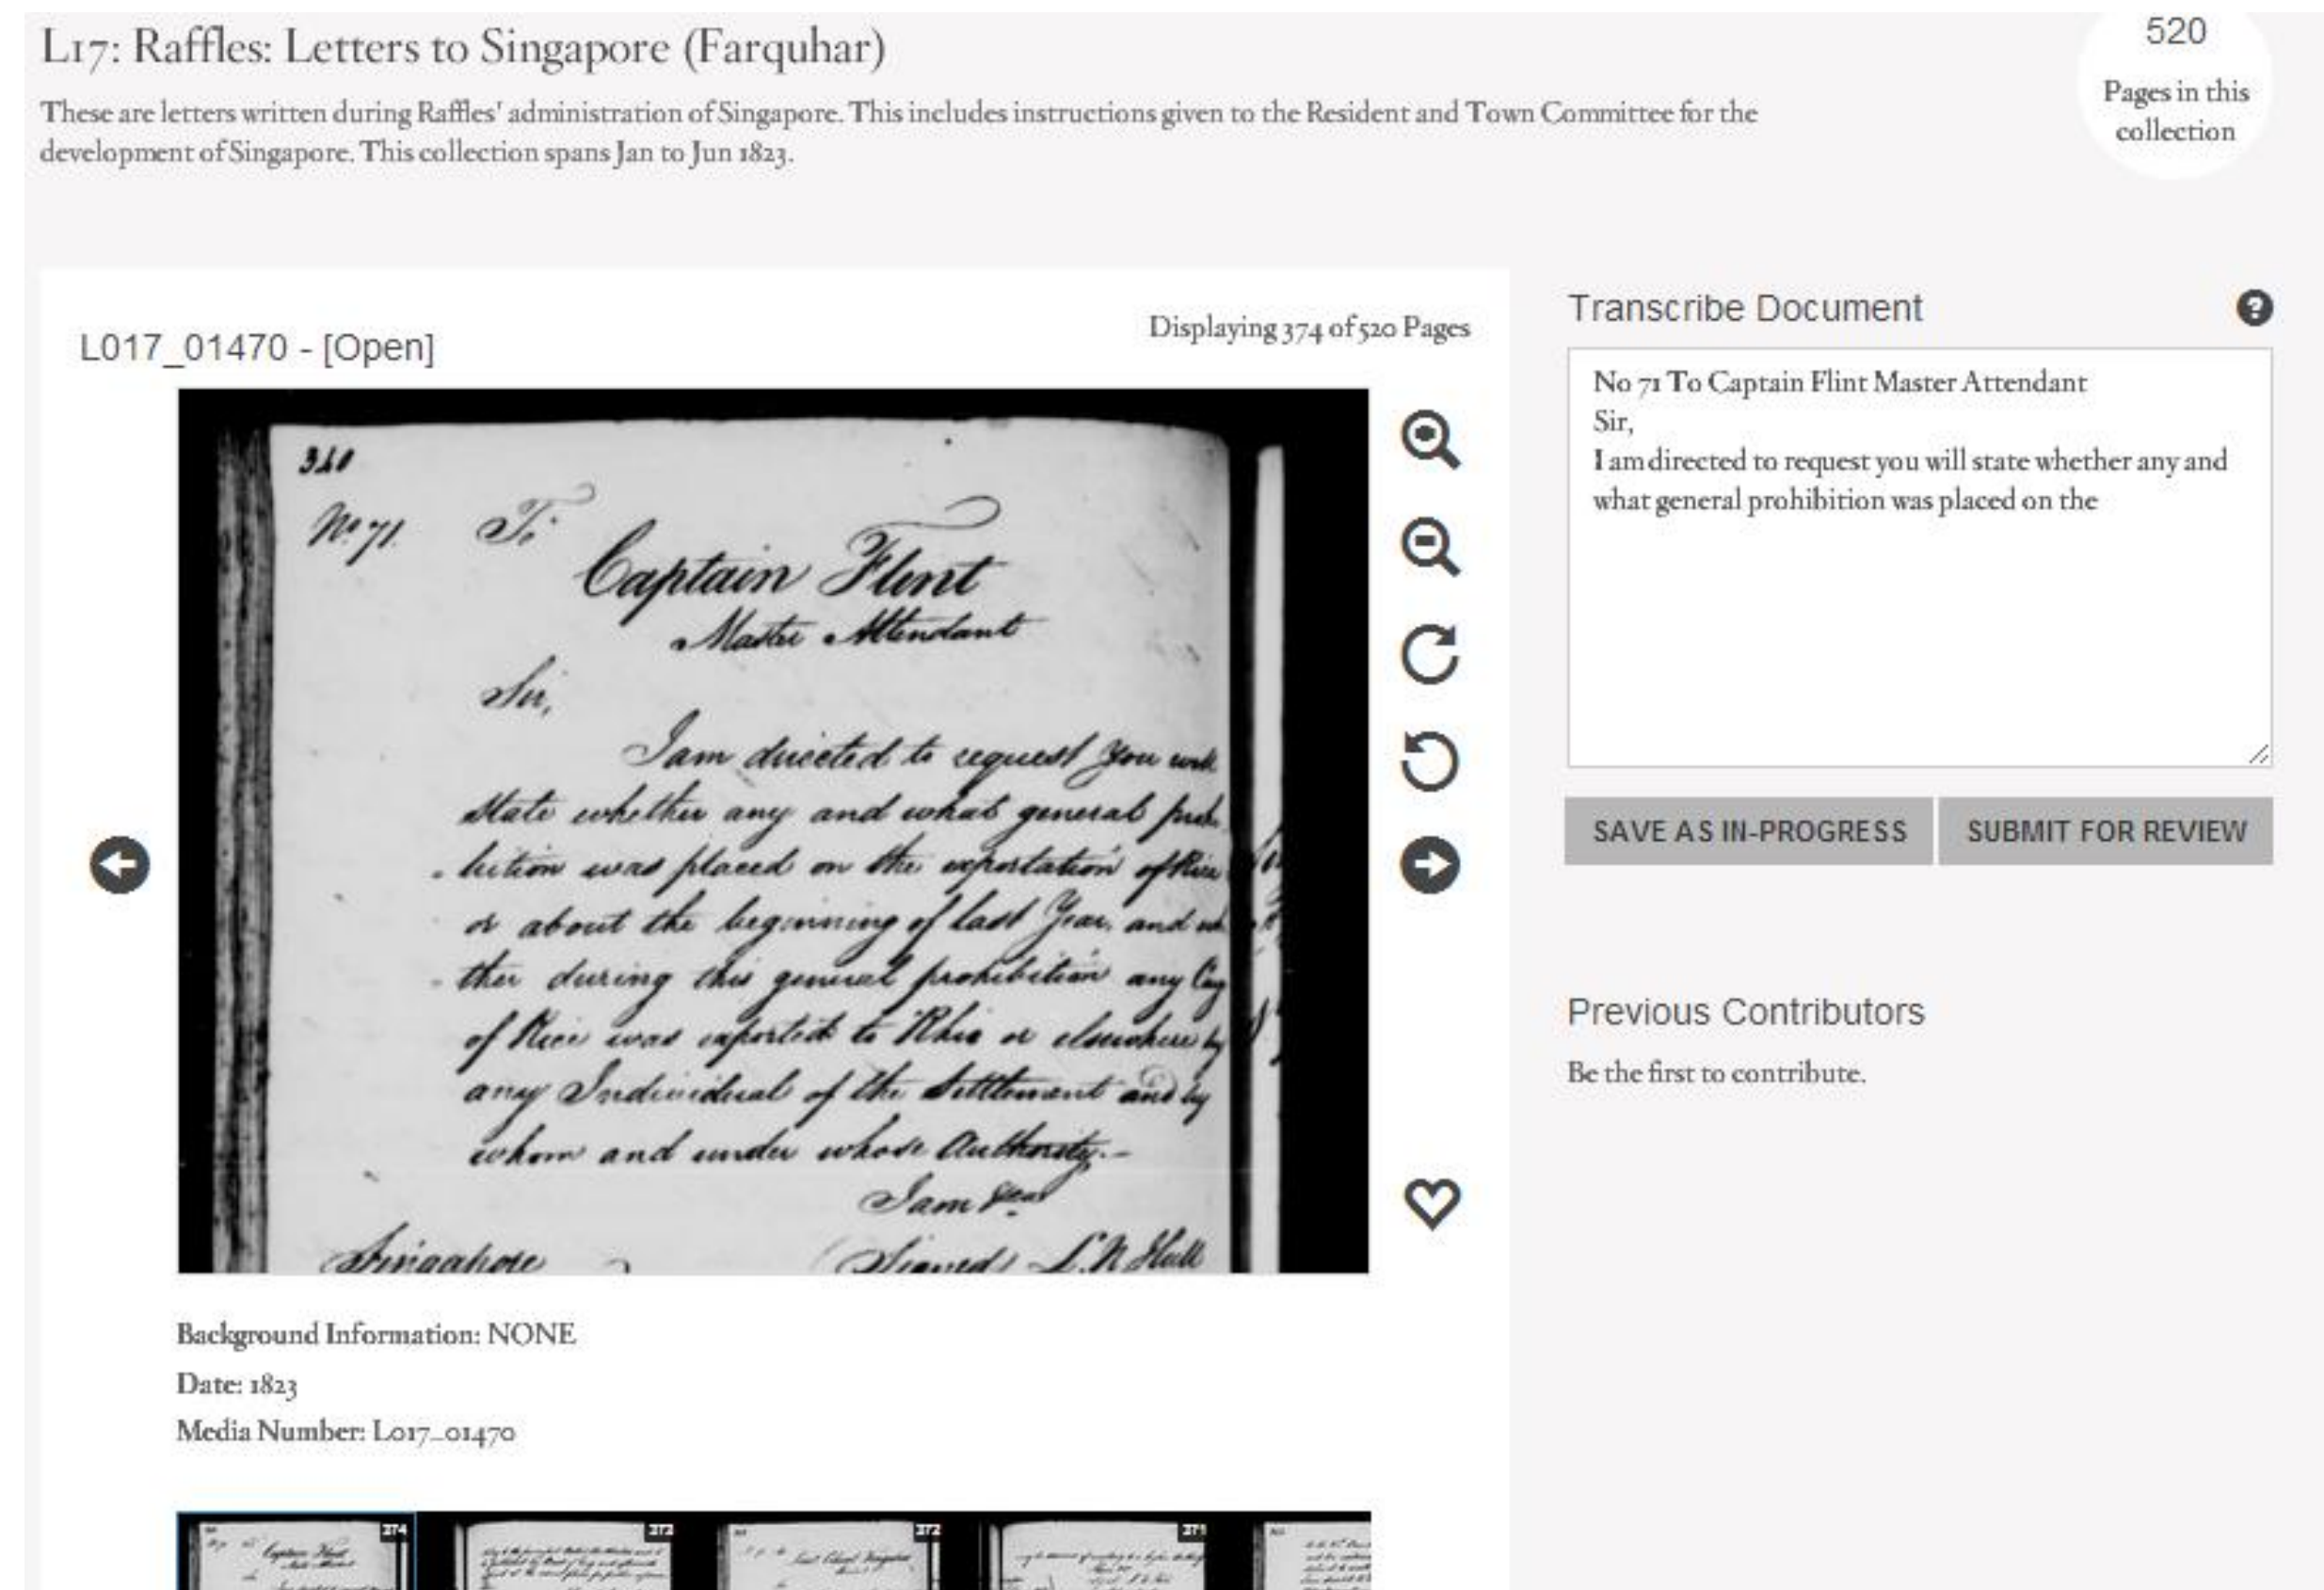 L17: Raffles: Letters to Singapore (Farquhar)
520
Pages in this
collection
These are letters written during Raffles' administration of Singapore. This includes instructions given to the Resident and Town Committee for the
development of Singapore. This collection spans Jan to Jun 1823.
L017_01470 - [Open]
Displaying 374 of 520 Pages
No. 71. To
Captain Flint
Master Attendant
Sir,
I am directed to request you will
state whether any and what general prohi
bition was placed on the exportation of Rice
or about the beginning of last Year, and
ther during this general prohibition any
of Rice was exported to Rhio or elsewhere by
any Individual of the Settlement and by
whom and under whose Authority.-
I am
Singapore
Signed L.N Hull
Background Information: NONE
Date: 1823
Media Number: L017_01470
374
373
372
371
Captain Flint
Transcribe Document
?
No 71 To Captain Flint Master Attendant
Sir,
I am directed to request you will state whether any and
what general prohibition was placed on the
SAVE AS IN-PROGRESS
SUBMIT FOR REVIEW
Previous Contributors
Be the first to contribute.